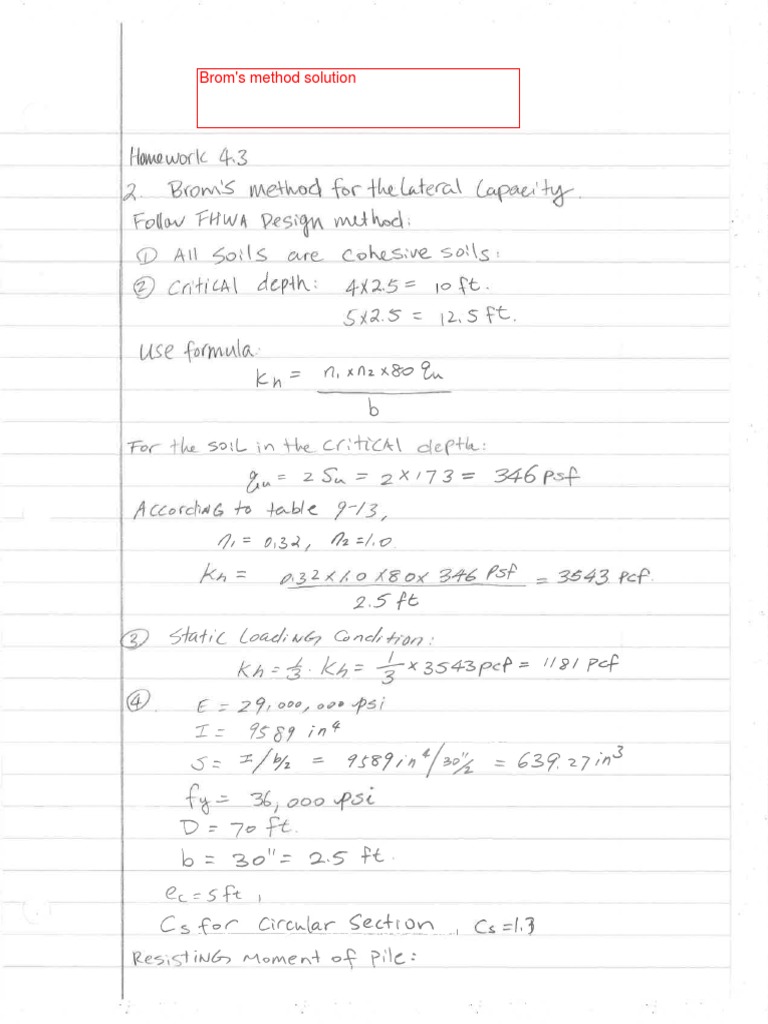 Brom's method solution
Homework 4.3
2. Brom's method for the lateral capacity.
Follow FHWA Design method:
① All soils are cohesive soils:
② Critical depth: 4x2.5 = 10 ft.
5x2.5 = 12.5 ft.
Use formula:
Kh = n1 x n2 x 80 qu
b
For the soil in the critical depth:
qu = 2 Su = 2 x 173 = 346 psf
According to table 9-13,
n1 = 0.32, n2 = 1.0
Kh = 0.32 x 1.0 x 80 x 346 psf = 3543 pcf.
2.5 ft
③ Static Loading Condition:
Kh = 1/3 · Kh = 1/3 x 3543 pcf = 1181 pcf
④. E = 29,000,000 psi
I = 9589 in⁴
S = I/b/2 = 9589 in⁴/30"/2 = 639.27 in³
fy = 36,000 psi
D = 70 ft.
b = 30" = 2.5 ft.
ec = 5 ft,
Cs for Circular Section, Cs = 1.3
Resisting Moment of Pile: